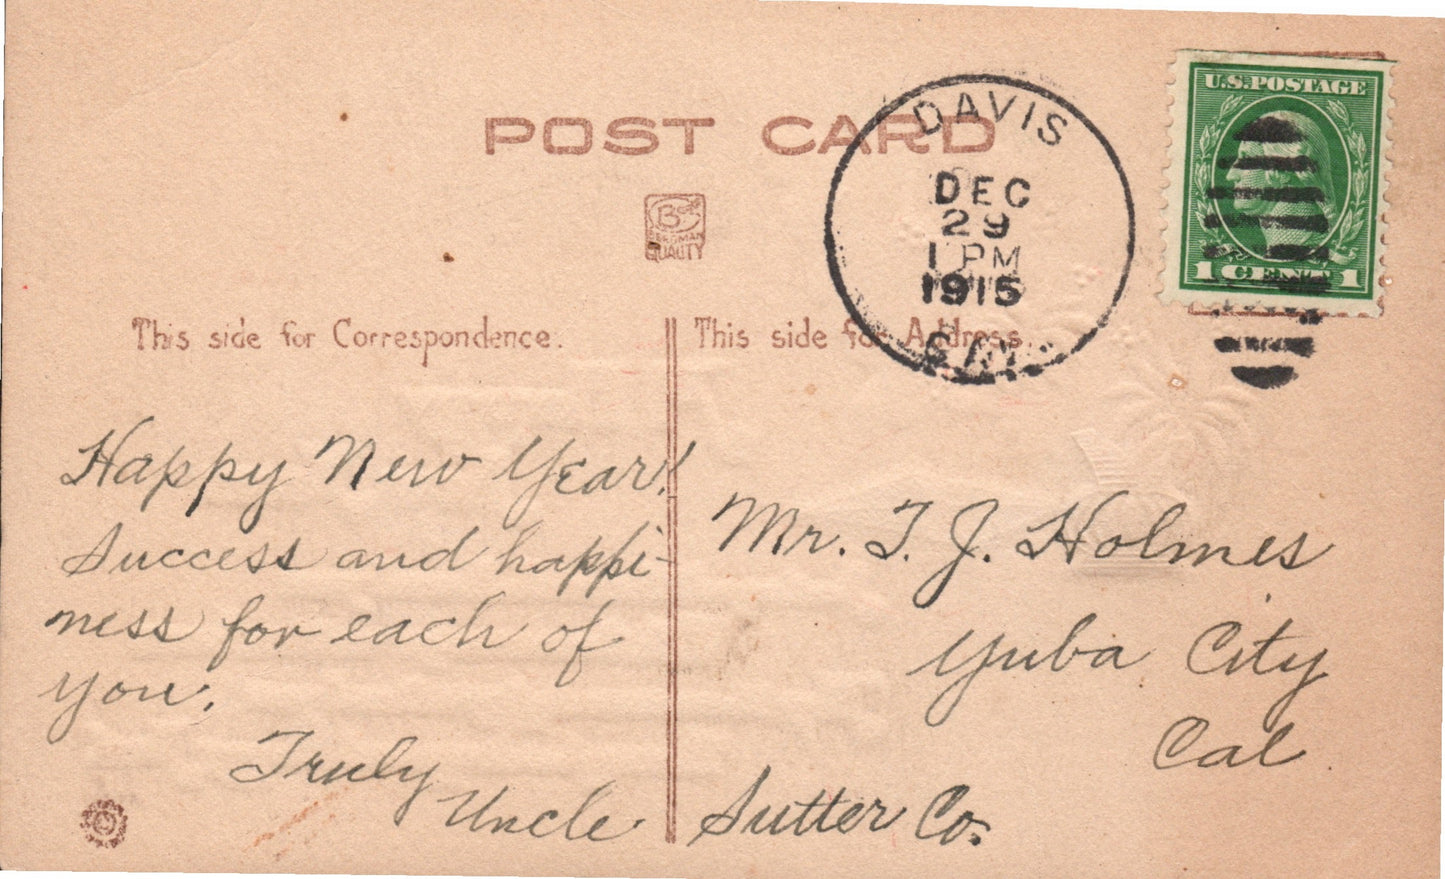 POST CARD
DAVIS
DEC
29
1 PM
1915
CAL.
U.S. POSTAGE
1 CENT 1
B
BERGMAN
QUALITY
This side for Correspondence.
This side for Address.
Happy New Year!
Success and happi-
ness for each of
you.
Truly
Uncle
Mr. T. J. Holmes
Yuba City
Cal
Sutter Co.